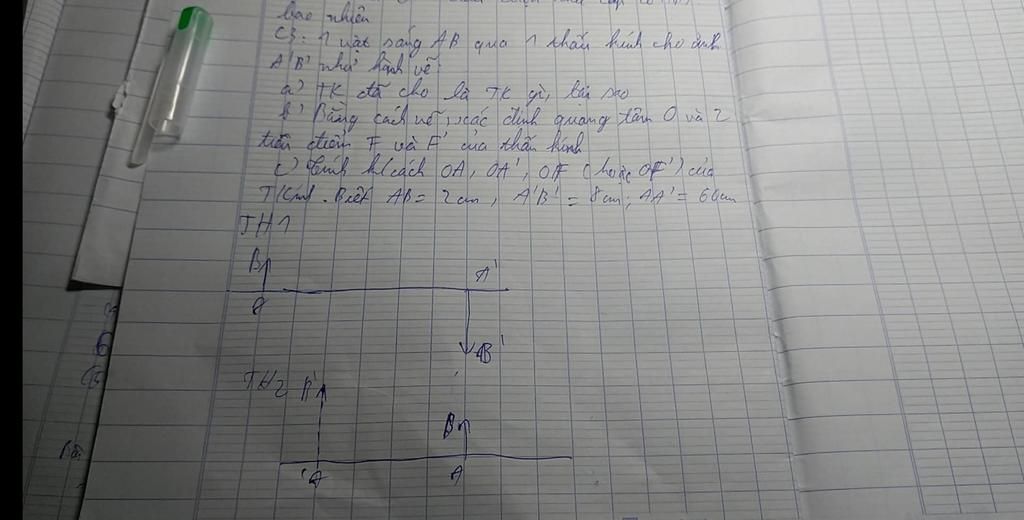 bao nhiêu
C3: 1 vật sáng AB qua 1 thấu kính cho ảnh
A'B' như hình vẽ
a) TK đã cho là TK gì, tại sao
b) Bằng cách vẽ, xác định quang tâm O và 2
tiêu điểm F và F' của thấu kính
c) Tính k/cách OA, OA', OF (hoặc OF') của
TKính. Biết AB = 2cm, A'B' = 8cm; AA' = 60cm
TH1
B
A'
A
B'
TH2 B'
B
'A
A